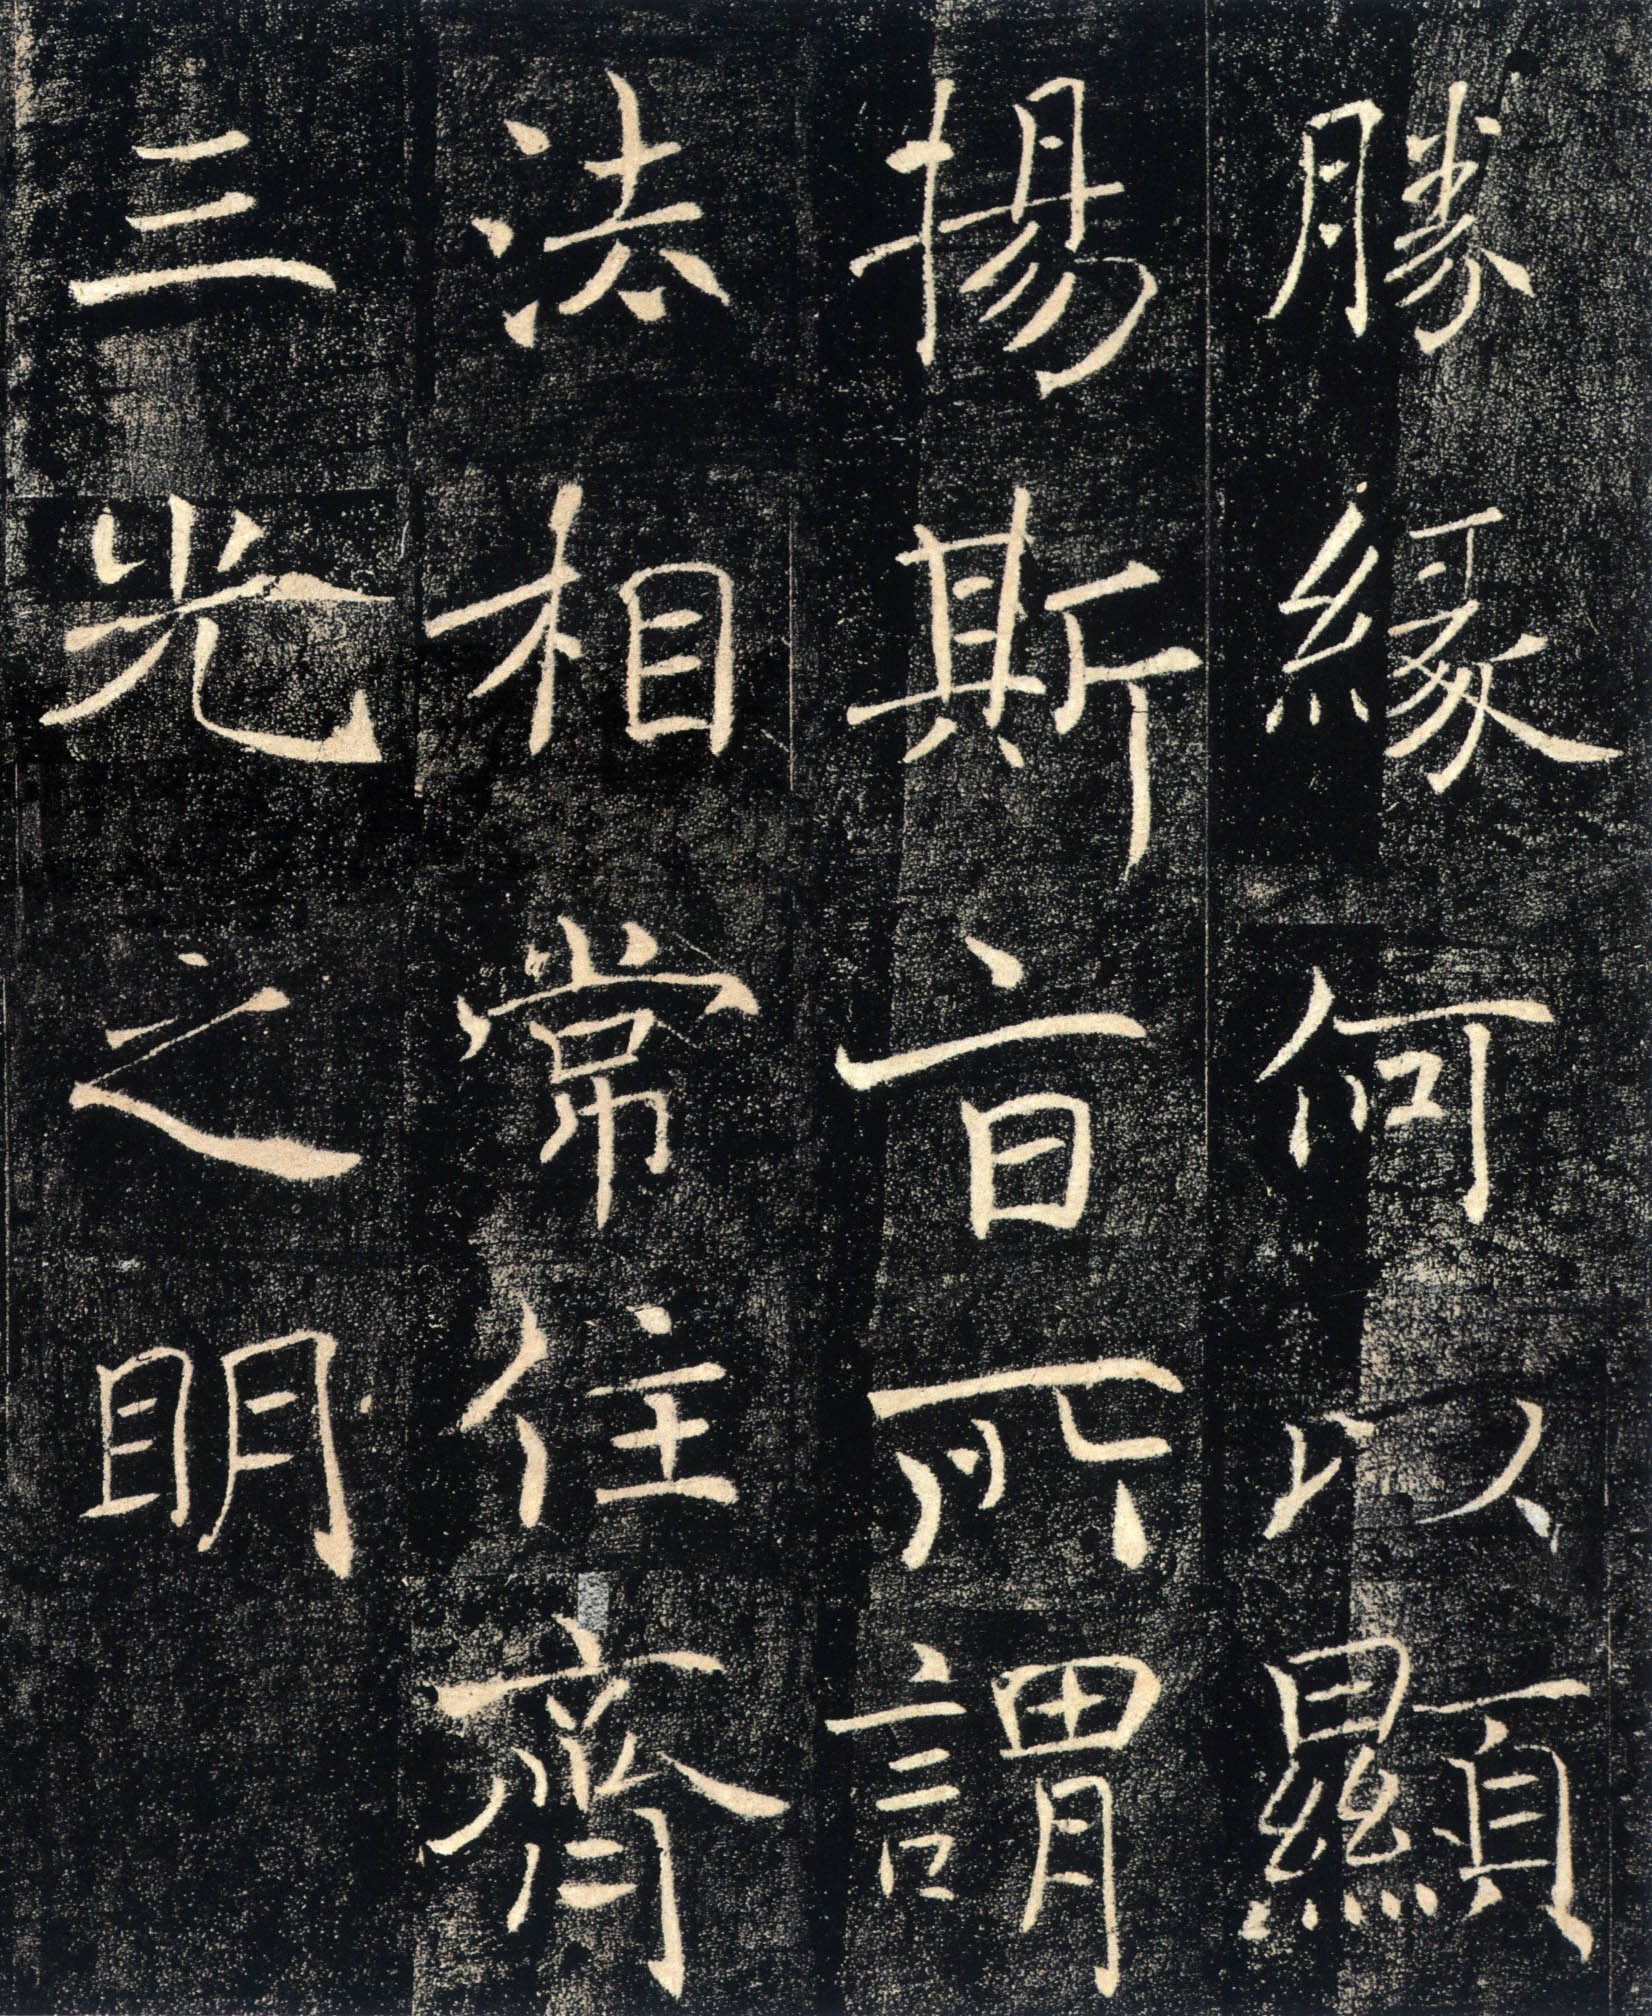 勝緣何以顯
揚斯旨所謂
法相常住齊
三光之明